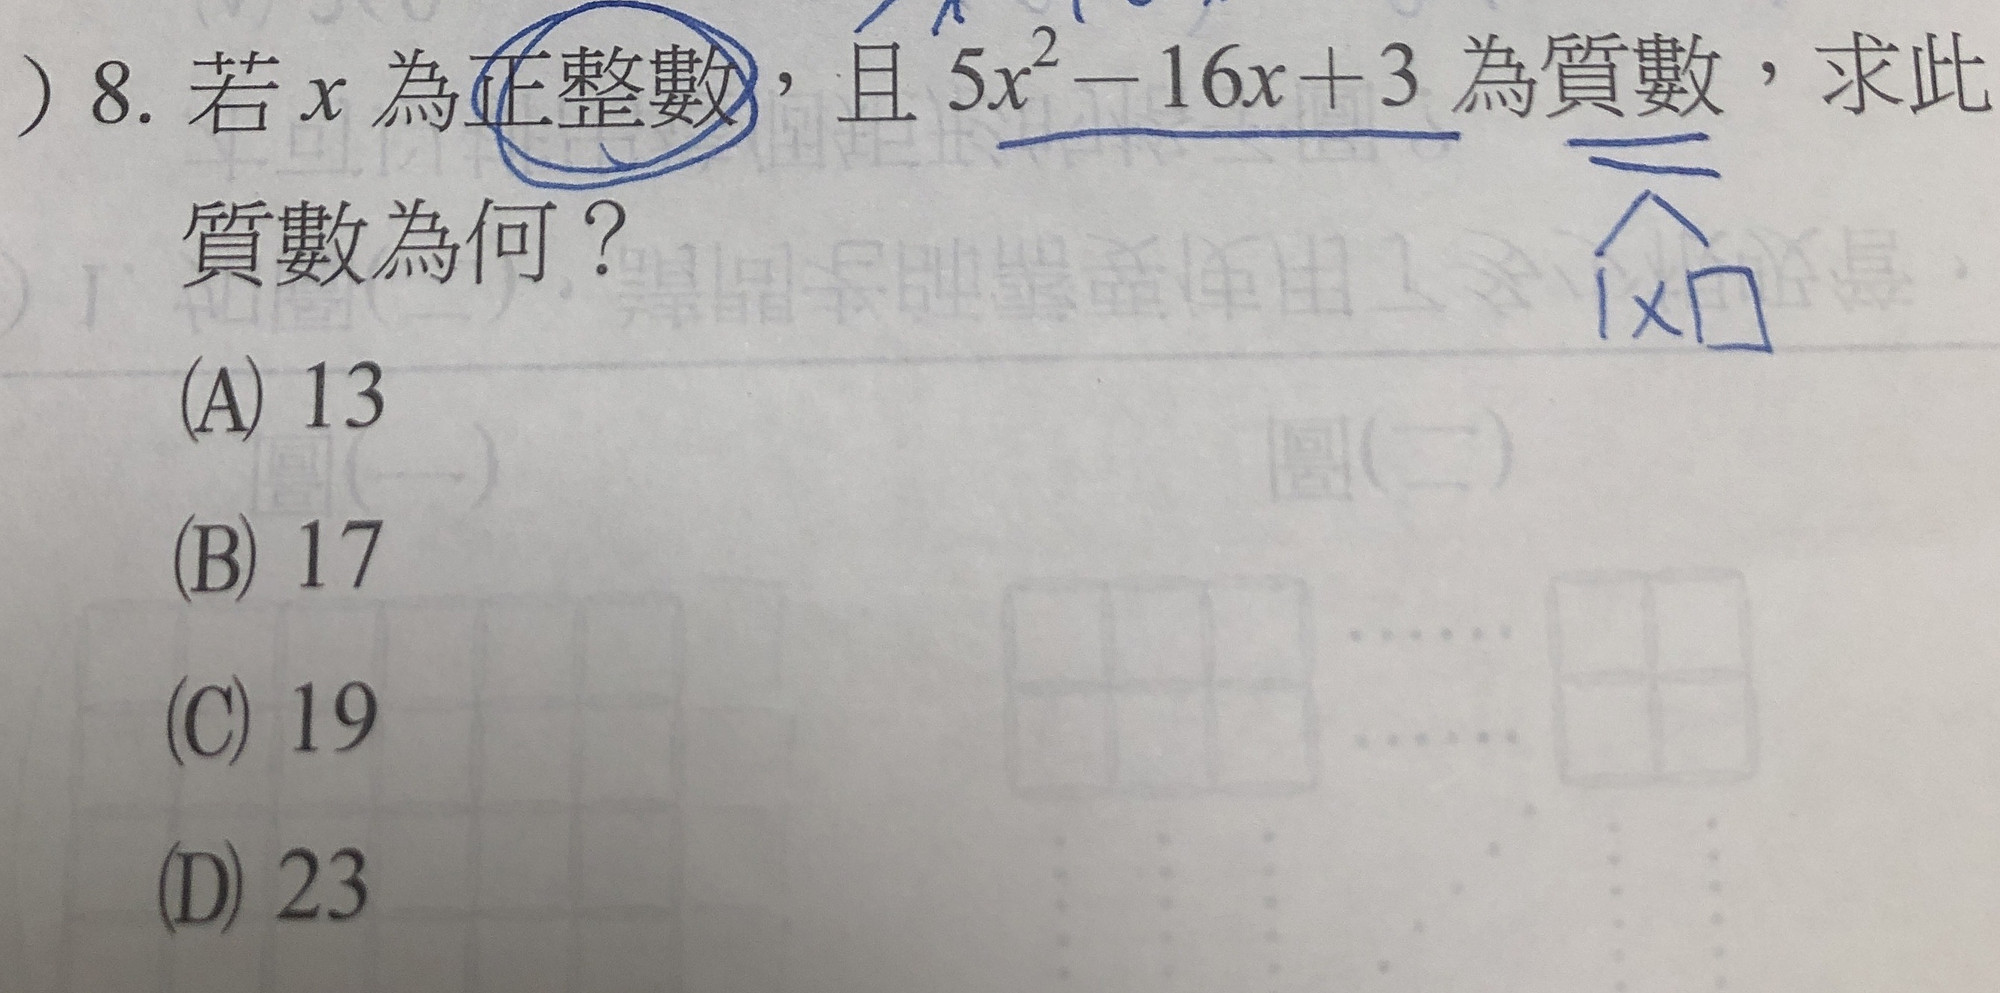 ) 8. 若 x 為正整數，且 5x² − 16x + 3 為質數，求此
質數為何？
1 × □
(A) 13
(B) 17
(C) 19
(D) 23